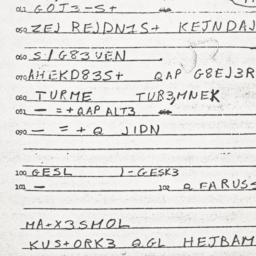 041 GOJ3-S+
050 ZEJ REJDN1S+ KEJNDAJ
060 S/G83VEN
070 AHEKD83S+ QAP G8EJ3R
080 TURME TUB3MNEK
081 — =+QAP ALT3
090 — = + Q JIDN
100 GESL 1-GESK3
101 — 102 Q FARUS
MA+X3SMOL
KUS+ORK3 QGL HEJBAM